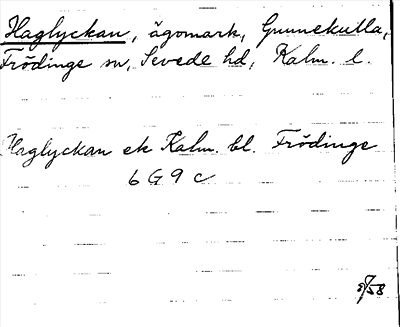 Haglyckan, ägomark, Gunnekulla,
Frödinge sn, Sevede hd, Kalm. l.
Haglyckan ek Kalm. bl. Frödinge
6 G 9 c